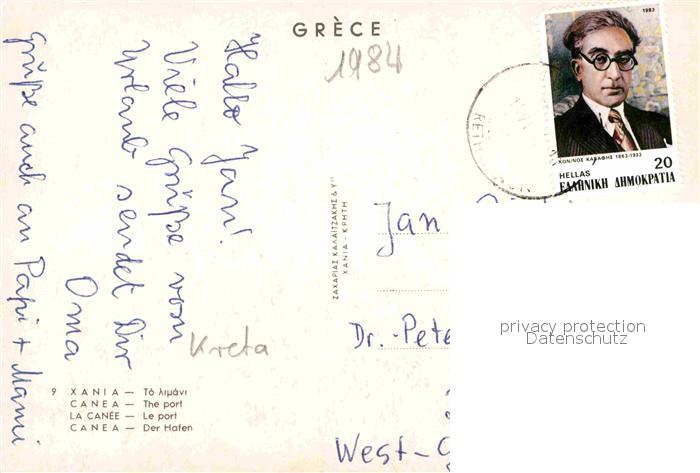 GRÈCE
1984
Hallo Jan!
Viele Grüße vom
Urlaub sendet Dir
Oma
Grüße auch an Papi + Mami
Kreta
9 ΧΑΝΙΑ — Τὸ λιμάνι
CANEA — The port
LA CANÉE — Le port
CANEA — Der Hafen
ΖΑΧΑΡΙΑΣ ΚΑΛΑΪΤΖΑΚΗΣ & Υἱὶ
ΧΑΝΙΑ - ΚΡΗΤΗ
1983
ΚΩΝ/ΝΟΣ ΚΑΒΑΦΗΣ 1863-1933
20
HELLAS
ΕΛΛΗΝΙΚΗ ΔΗΜΟΚΡΑΤΙΑ
Jan
Dr.-Pete
West-G
privacy protection
Datenschutz